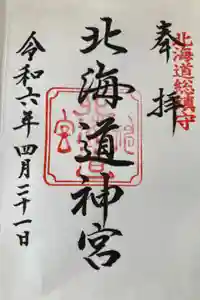 北海道総鎮守
奉拝
北海道神宮
令和六年四月二十一日